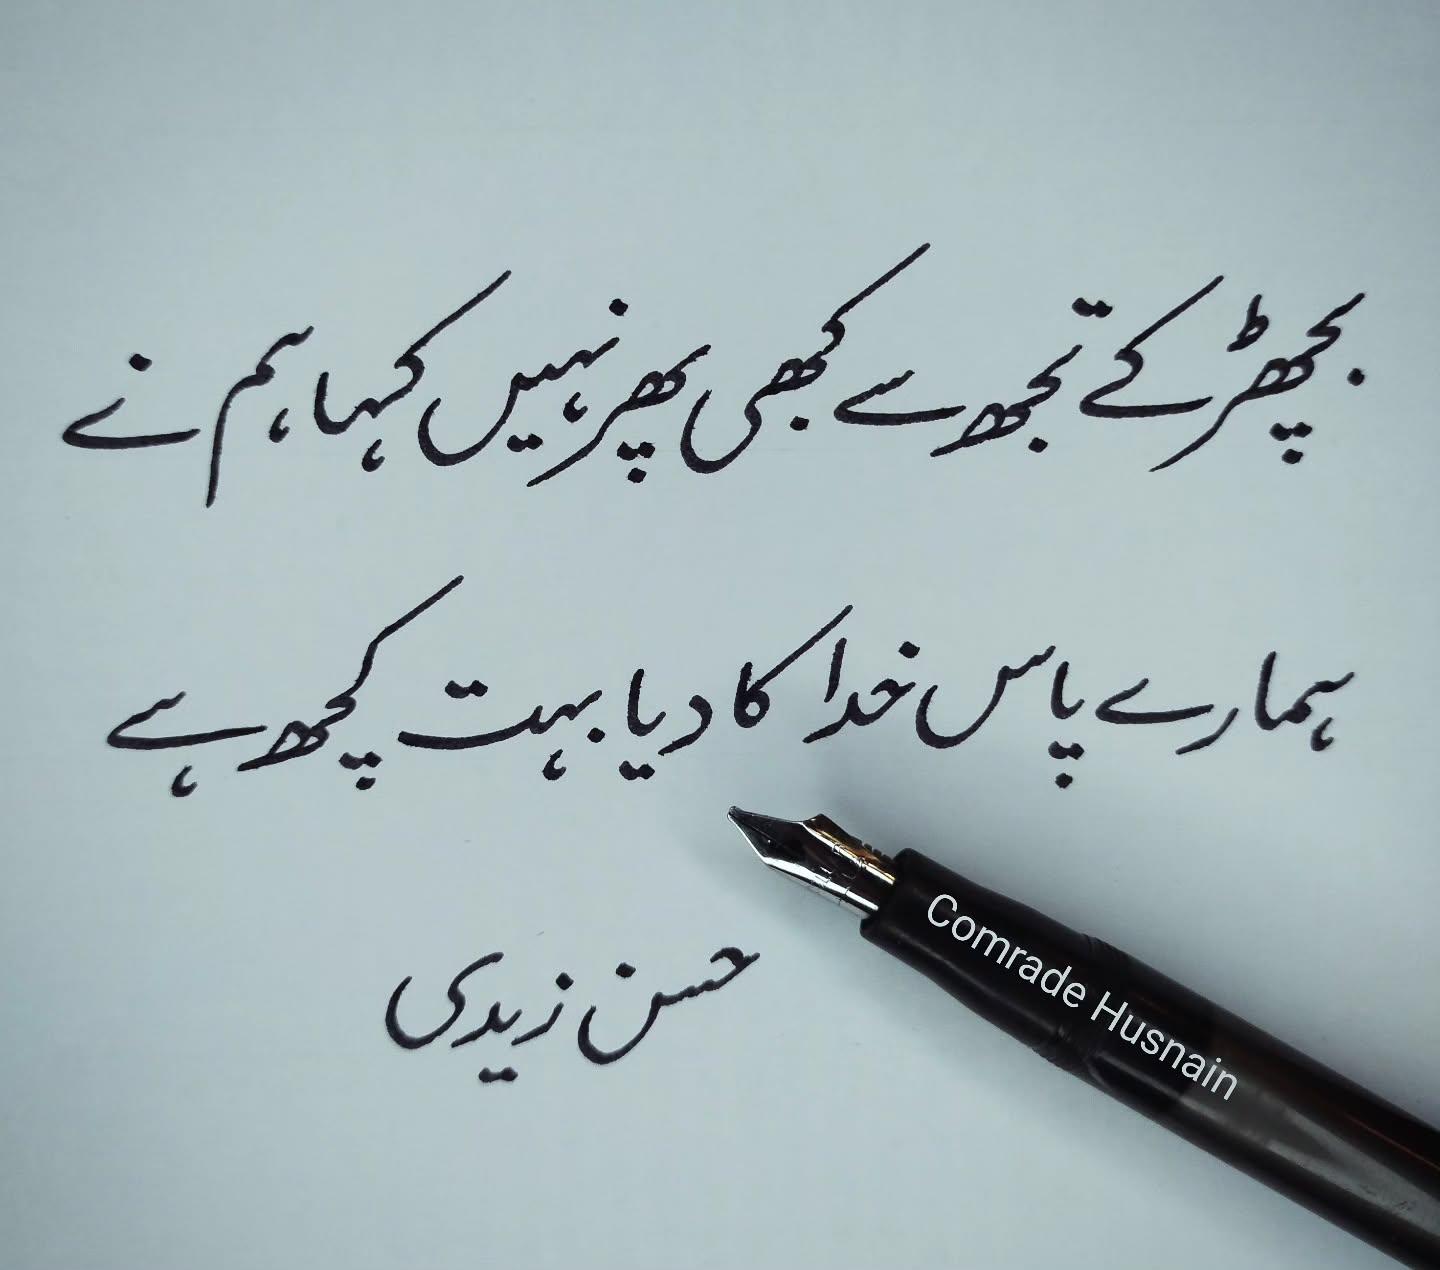 بچھڑ کے تجھ سے کبھی پھر نہیں کہا ہم نے
ہمارے پاس خدا کا دیا بہت کچھ ہے
حسن زیدی
Comrade Husnain